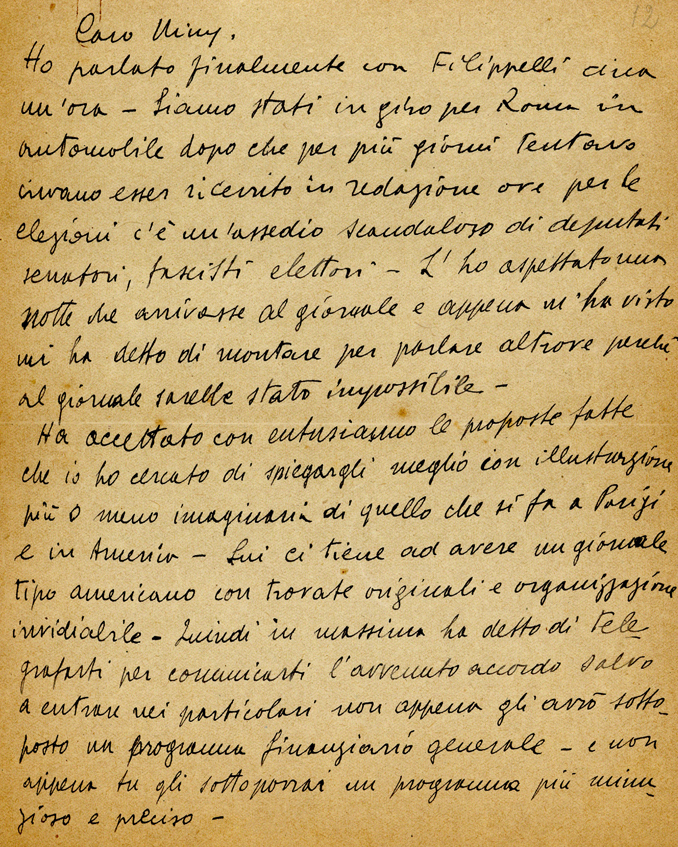 12
Caro Miny.
Ho parlato finalmente con Filippelli circa
un'ora - Siamo stati in giro per Roma in
automobile dopo che per più giorni tentavo
invano esser ricevuto in redazione ove per le
elezioni c'è un'assedio scandaloso di deputati
senatori, fascisti elettori - L'ho aspettato una
notte che arrivasse al giornale e appena m'ha visto
mi ha detto di montare per parlare altrove perchè
al giornale sarebbe stato impossibile -
Ha accettato con entusiasmo le proposte fatte
che io ho cercato di spiegargli meglio con illustrazione
più o meno imaginaria di quello che si fa a Parigi
e in America - Lui ci tiene ad avere un giornale
tipo americano con trovate originali e organizzazione
invidiabile - Quindi in massima ha detto di tele-
grafarti per comunicarti l'avvenuto accordo salvo
a entrare nei particolari non appena gli avrò sotto-
posto un programma finanziario generale - e non
appena tu gli sottoporrai un programma più minu-
zioso e preciso -